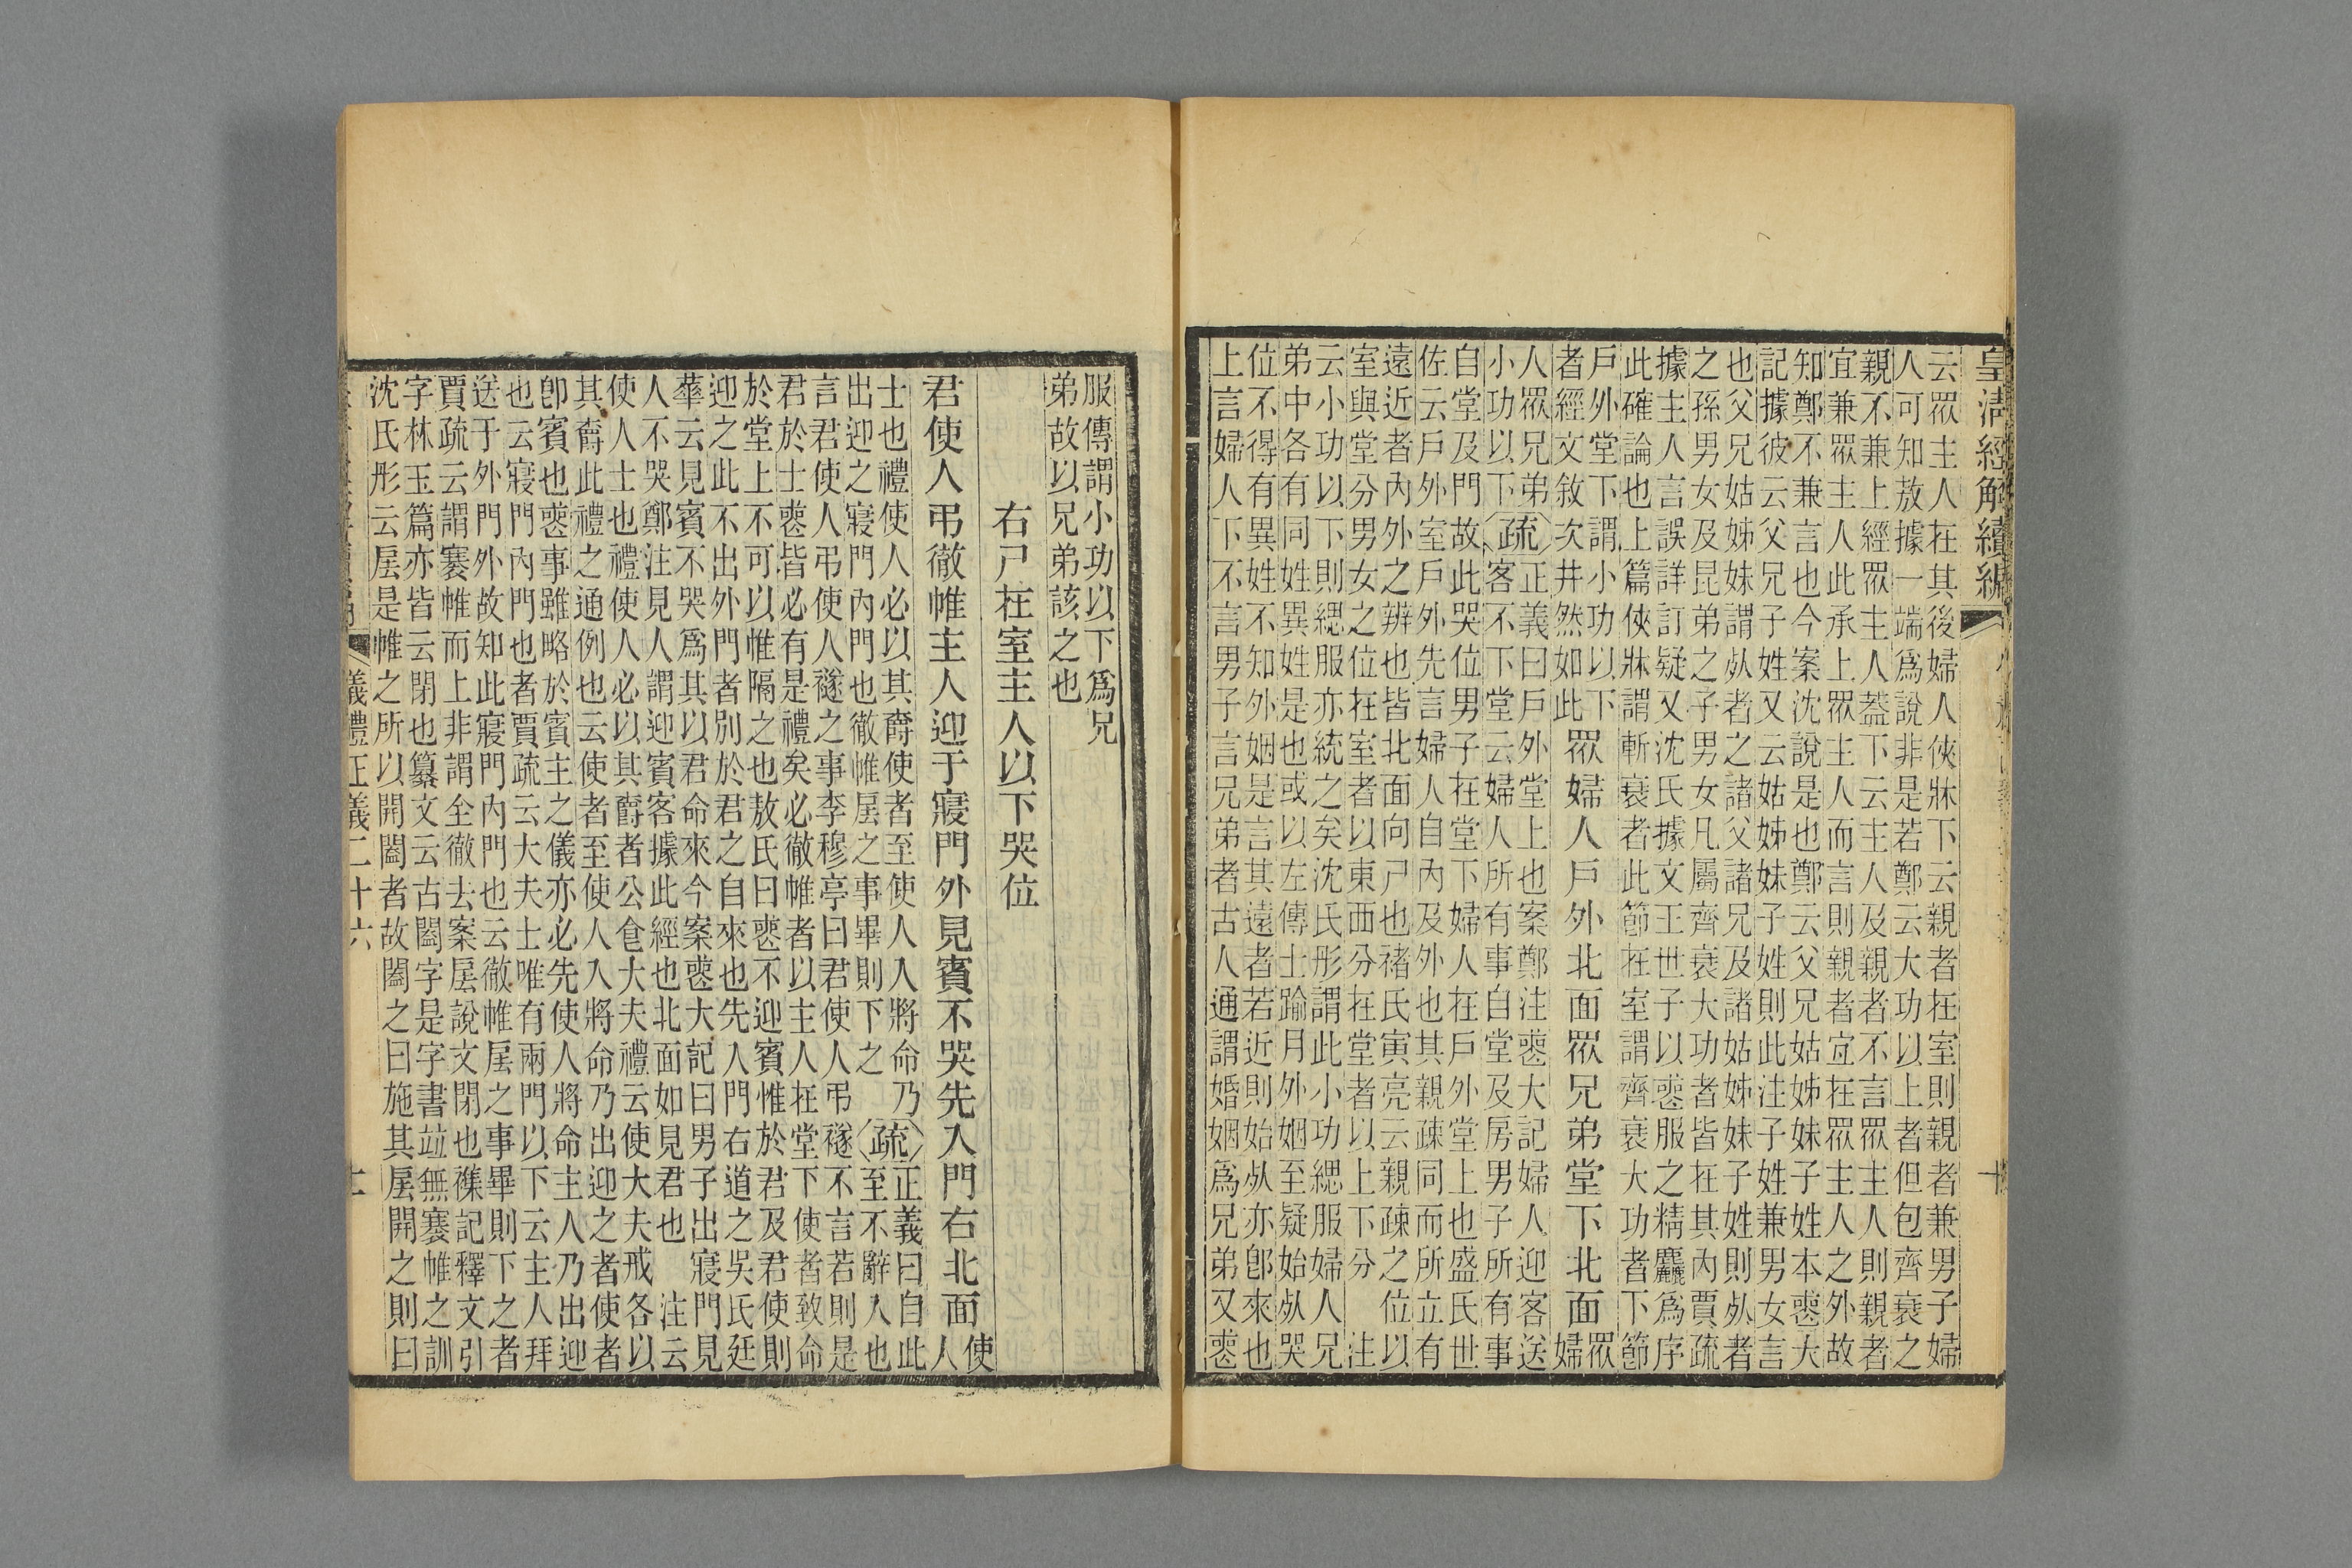 皇清經解續編
云眾主人在其後婦人俠牀下云親者在室則親者兼男子婦
人可知敖據一端爲說非是若鄭云大功以上者但包齊衰之
親不兼上經眾主人葢下云主人及親者不言眾主人則親者
宜兼眾主人此承上眾主人而言則親者宜在眾主人之外故
知鄭不兼言也今案沈說是也鄭云父兄姑姊妹子姓本喪大
記據彼云父兄子姓又云姑姊妹子姓則此注子姓兼男女言
也父兄姑姊妹謂𠨧者之諸父諸兄及諸姑姊妹子姓則𠨧者
之孫男女及昆弟之子男女凡屬齊衰大功者皆在其內賈疏
據主人言誤詳訂疑又沈氏據文王世子以喪服之精麤爲序
此確論也上篇俠牀謂斬衰者此節在室謂齊衰大功者下節
戶外堂下謂小功以下
者經文敘次井然如此
眾婦人戶外北面眾兄弟堂下北面
眾
婦
人眾兄弟
小功以下
疏
正義曰戶外堂上也案鄭注喪大記婦人迎客送
客不下堂云婦人所有事自堂及房男子所有事
自堂及門故此哭位男子在堂下婦人在戶外堂上也盛氏世
佐云戶外室戶外先言婦人自內及外也其親疎同而所立有
遠近者內外之辨也皆北面向尸也褚氏寅亮云親疎之位以
室與堂分男女之位在室者以東西分在堂者以上下分注
云小功以下則緦服亦統之矣沈氏彤謂此小功緦服婦人兄
弟中各有同姓異姓是也或以左傳士踰月外姻至疑始𠨧哭
位不得有異姓不知外姻是言其遠者若近則始𠨧亦卽來也
上言婦人下不言男子言兄弟者古人通謂婚姻爲兄弟又喪
服傳謂小功以下爲兄
弟故以兄弟該之也
右尸在室主人以下哭位
君使人弔徹帷主人迎于寢門外見賓不哭先入門右北面
使
人
士也禮使人必以其𣝣使者至使人入將命乃
出迎之寢門內門也徹帷㞟之事畢則下之
疏
正義曰自此
至不辭入也
言君使人弔使人襚之事李穆亭曰君使人弔襚不言若則是
君於士喪皆必有是禮矣必徹帷者以主人在堂下使者致命
於堂上不可以帷隔之也敖氏曰喪不迎賓惟於君及君使則
迎之此不出外門者別於君之自來也先入門右道之吳氏廷
華云見賓不哭爲其以君命來今案喪大記曰男子出寢門見
人不哭鄭注見人謂迎賓客據此經也北面如見君也注云
使人士也禮使人必以其𣝣者公食大夫禮云使大夫戒各以
其𣝣此禮之通例也云使者至使人入將命乃出迎之者使者
卽賓也喪事雖略於賓主之儀亦必先使人將命主人乃出迎
也云寢門內門也者賈疏云大夫士唯有兩門以下云主人拜
送于外門外故知此寢門內門也云徹帷㞟之事畢則下之者
賈疏云謂褰帷而上非謂全徹去案㞟說文閉也襍記釋文引
字林玉篇亦皆云閉也纂文云古闔字是字書竝無褰帷之訓
沈氏彤云㞟是帷之所以開闔者故闔之曰施其㞟開之則曰
儀禮正義二十六